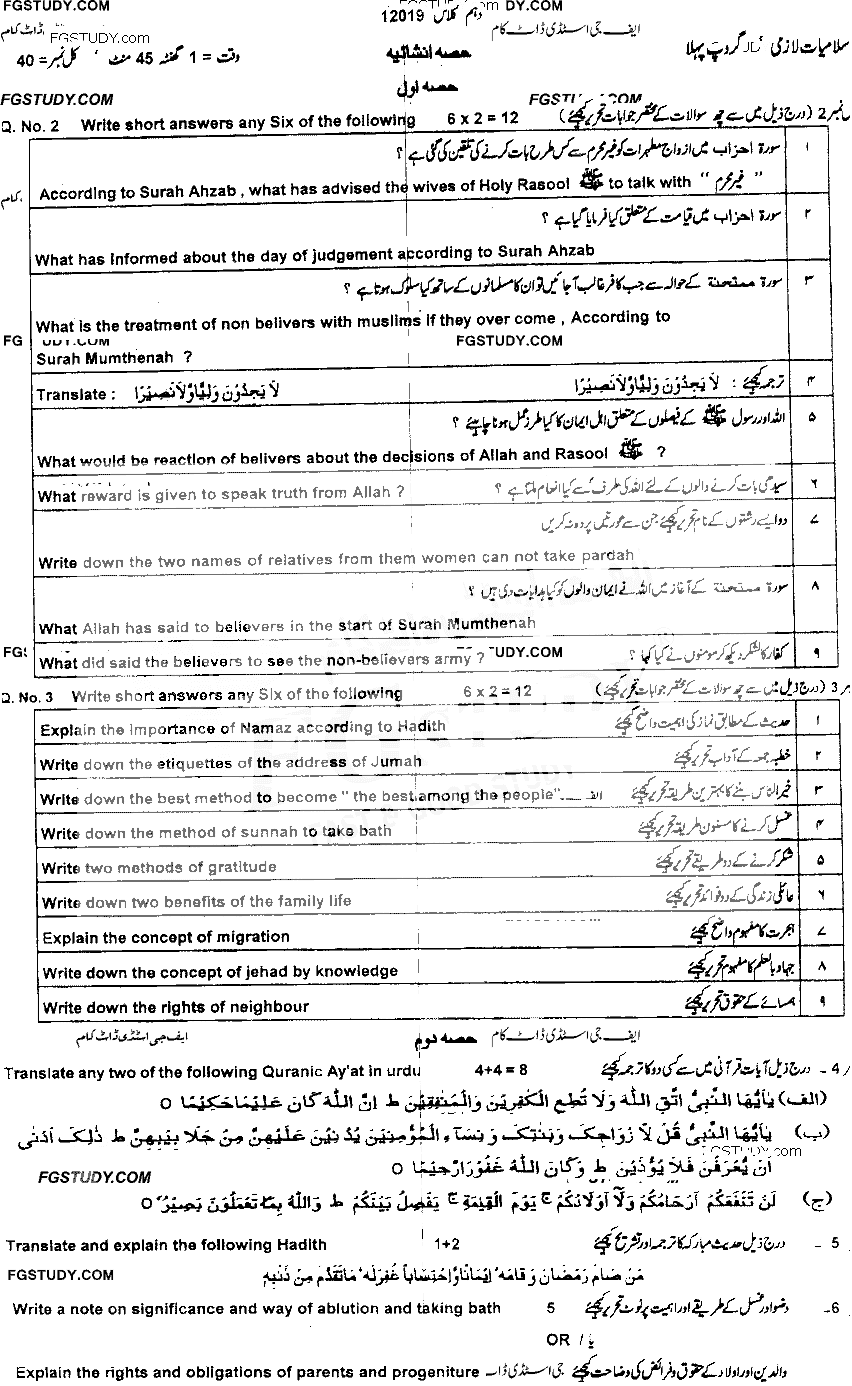 FGSTUDY.COM DY.COM
دہم کلاس 12019
ایف جی اسٹڈی ڈاٹ کام
FGSTUDY.com
سلامیات لازمی گروپ پہلا
حصہ انشائیہ
وقت = 1 گھنٹہ 45 منٹ ، کل نمبر = 40
حصہ اول
FGSTUDY.COM
Q. No. 2 Write short answers any Six of the following 6 x 2 = 12 (درج ذیل میں سے چھ سوالات کے مختصر جوابات تحریر کیجئے)
۱ سورۃ احزاب میں ازواج مطہرات کو غیر محرم سے کس طرح بات کرنے کی تلقین کی گئی ہے ؟
According to Surah Ahzab , what has advised the wives of Holy Rasool ﷺ to talk with " غیر محرم "
۲ سورۃ احزاب میں قیامت کے متعلق کیا فرمایا گیا ہے ؟
What has informed about the day of judgement according to Surah Ahzab
۳ سورۃ ممتحنۃ کے حوالہ سے جب کافر غالب آ جائیں تو ان کا مسلمانوں کے ساتھ کیا سلوک ہوتا ہے ؟
What is the treatment of non belivers with muslims if they over come , According to
FG UDY.COM FGSTUDY.COM
Surah Mumthenah ?
۴ ترجمہ کیجئے : لَا يَجِدُوْنَ وَلِيًّا وَّلَا نَصِيْرًا Translate : لَا يَجِدُوْنَ وَلِيًّا وَّلَا نَصِيْرًا
۵ اللہ اور رسول ﷺ کے فیصلوں کے متعلق اہل ایمان کا کیا طرز عمل ہونا چاہیئے ؟
What would be reaction of belivers about the decisions of Allah and Rasool ﷺ ?
۶ سیدھی بات کرنے والوں کے لئے اللہ کی طرف سے کیا انعام ملتا ہے ؟ What reward is given to speak truth from Allah ?
۷ دو ایسے رشتوں کے نام تحریر کیجئے جن سے عورتیں پردہ نہ کریں
Write down the two names of relatives from them women can not take pardah
۸ سورۃ ممتحنۃ کے آغاز میں اللہ نے ایمان والوں کو کیا ہدایات دی ہیں ؟
What Allah has said to believers in the start of Surah Mumthenah
۹ کفار کا لشکر دیکھ کر مومنوں نے کیا کہا ؟ What did said the believers to see the non-believers army ? UDY.COM
Q. No. 3 Write short answers any Six of the following 6 x 2 = 12 (درج ذیل میں سے چھ سوالات کے مختصر جوابات تحریر کیجئے)
۱ حدیث کے مطابق نماز کی اہمیت واضح کیجئے Explain the importance of Namaz according to Hadith
۲ خطبہ جمعہ کے آداب تحریر کیجئے Write down the etiquettes of the address of Jumah
۳ خیر الناس بننے کا بہترین طریقہ تحریر کیجئے Write down the best method to become " the best among the people"
۴ غسل کرنے کا مسنون طریقہ تحریر کیجئے Write down the method of sunnah to take bath
۵ شکر کرنے کے دو طریقے تحریر کیجئے Write two methods of gratitude
۶ عائلی زندگی کے دو فوائد تحریر کیجئے Write down two benefits of the family life
۷ ہجرت کا مفہوم واضح کیجئے Explain the concept of migration
۸ جہاد بالعلم کا مفہوم تحریر کیجئے Write down the concept of jehad by knowledge
۹ ہمسائے کے حقوق تحریر کیجئے Write down the rights of neighbour
ایف جی اسٹڈی ڈاٹ کام حصہ دوم ایف جی اسٹڈی ڈاٹ کام
Translate any two of the following Quranic Ay'at in urdu 4+4 = 8 4 - درج ذیل آیات قرآنی میں سے کسی دو کا ترجمہ کیجئے
(الف) يٰاَيُّهَا النَّبِىُّ اتَّقِ اللّٰهَ وَلَا تُطِعِ الْكٰفِرِيْنَ وَالْمُنٰفِقِيْنَ ط اِنَّ اللّٰهَ كَانَ عَلِيْمًا حَكِيْمًا ٥
(ب) يٰاَيُّهَا النَّبِىُّ قُلْ لِّاَزْوَاجِكَ وَبَنٰتِكَ وَنِسَآءِ الْمُؤْمِنِيْنَ يُدْنِيْنَ عَلَيْهِنَّ مِنْ جَلَابِيْبِهِنَّ ط ذٰلِكَ اَدْنٰى
FGSTUDY.COM
اَنْ يُّعْرَفْنَ فَلَا يُؤْذَيْنَ ط وَكَانَ اللّٰهُ غَفُوْرًا رَّحِيْمًا ٥
(ج) لَنْ تَنْفَعَكُمْ اَرْحَامُكُمْ وَلَآ اَوْلَادُكُمْ يَوْمَ الْقِيٰمَةِ يَفْصِلُ بَيْنَكُمْ ط وَاللّٰهُ بِمَا تَعْمَلُوْنَ بَصِيْرٌ ٥
Translate and explain the following Hadith 1+2 5 - درج ذیل حدیث مبارکہ کا ترجمہ اور تشریح کیجئے
FGSTUDY.COM مَنْ صَامَ رَمَضَانَ وَقَامَهٗ اِيْمَانًا وَّاحْتِسَابًا غُفِرَ لَهٗ مَا تَقَدَّمَ مِنْ ذَنْبِهٖ
Write a note on significance and way of ablution and taking bath 5 6- وضو اور غسل کے طریقے اور اہمیت پر نوٹ تحریر کیجئے
OR / یا
Explain the rights and obligations of parents and progeniture والدین اور اولاد کے حقوق و فرائض کی وضاحت کیجئے